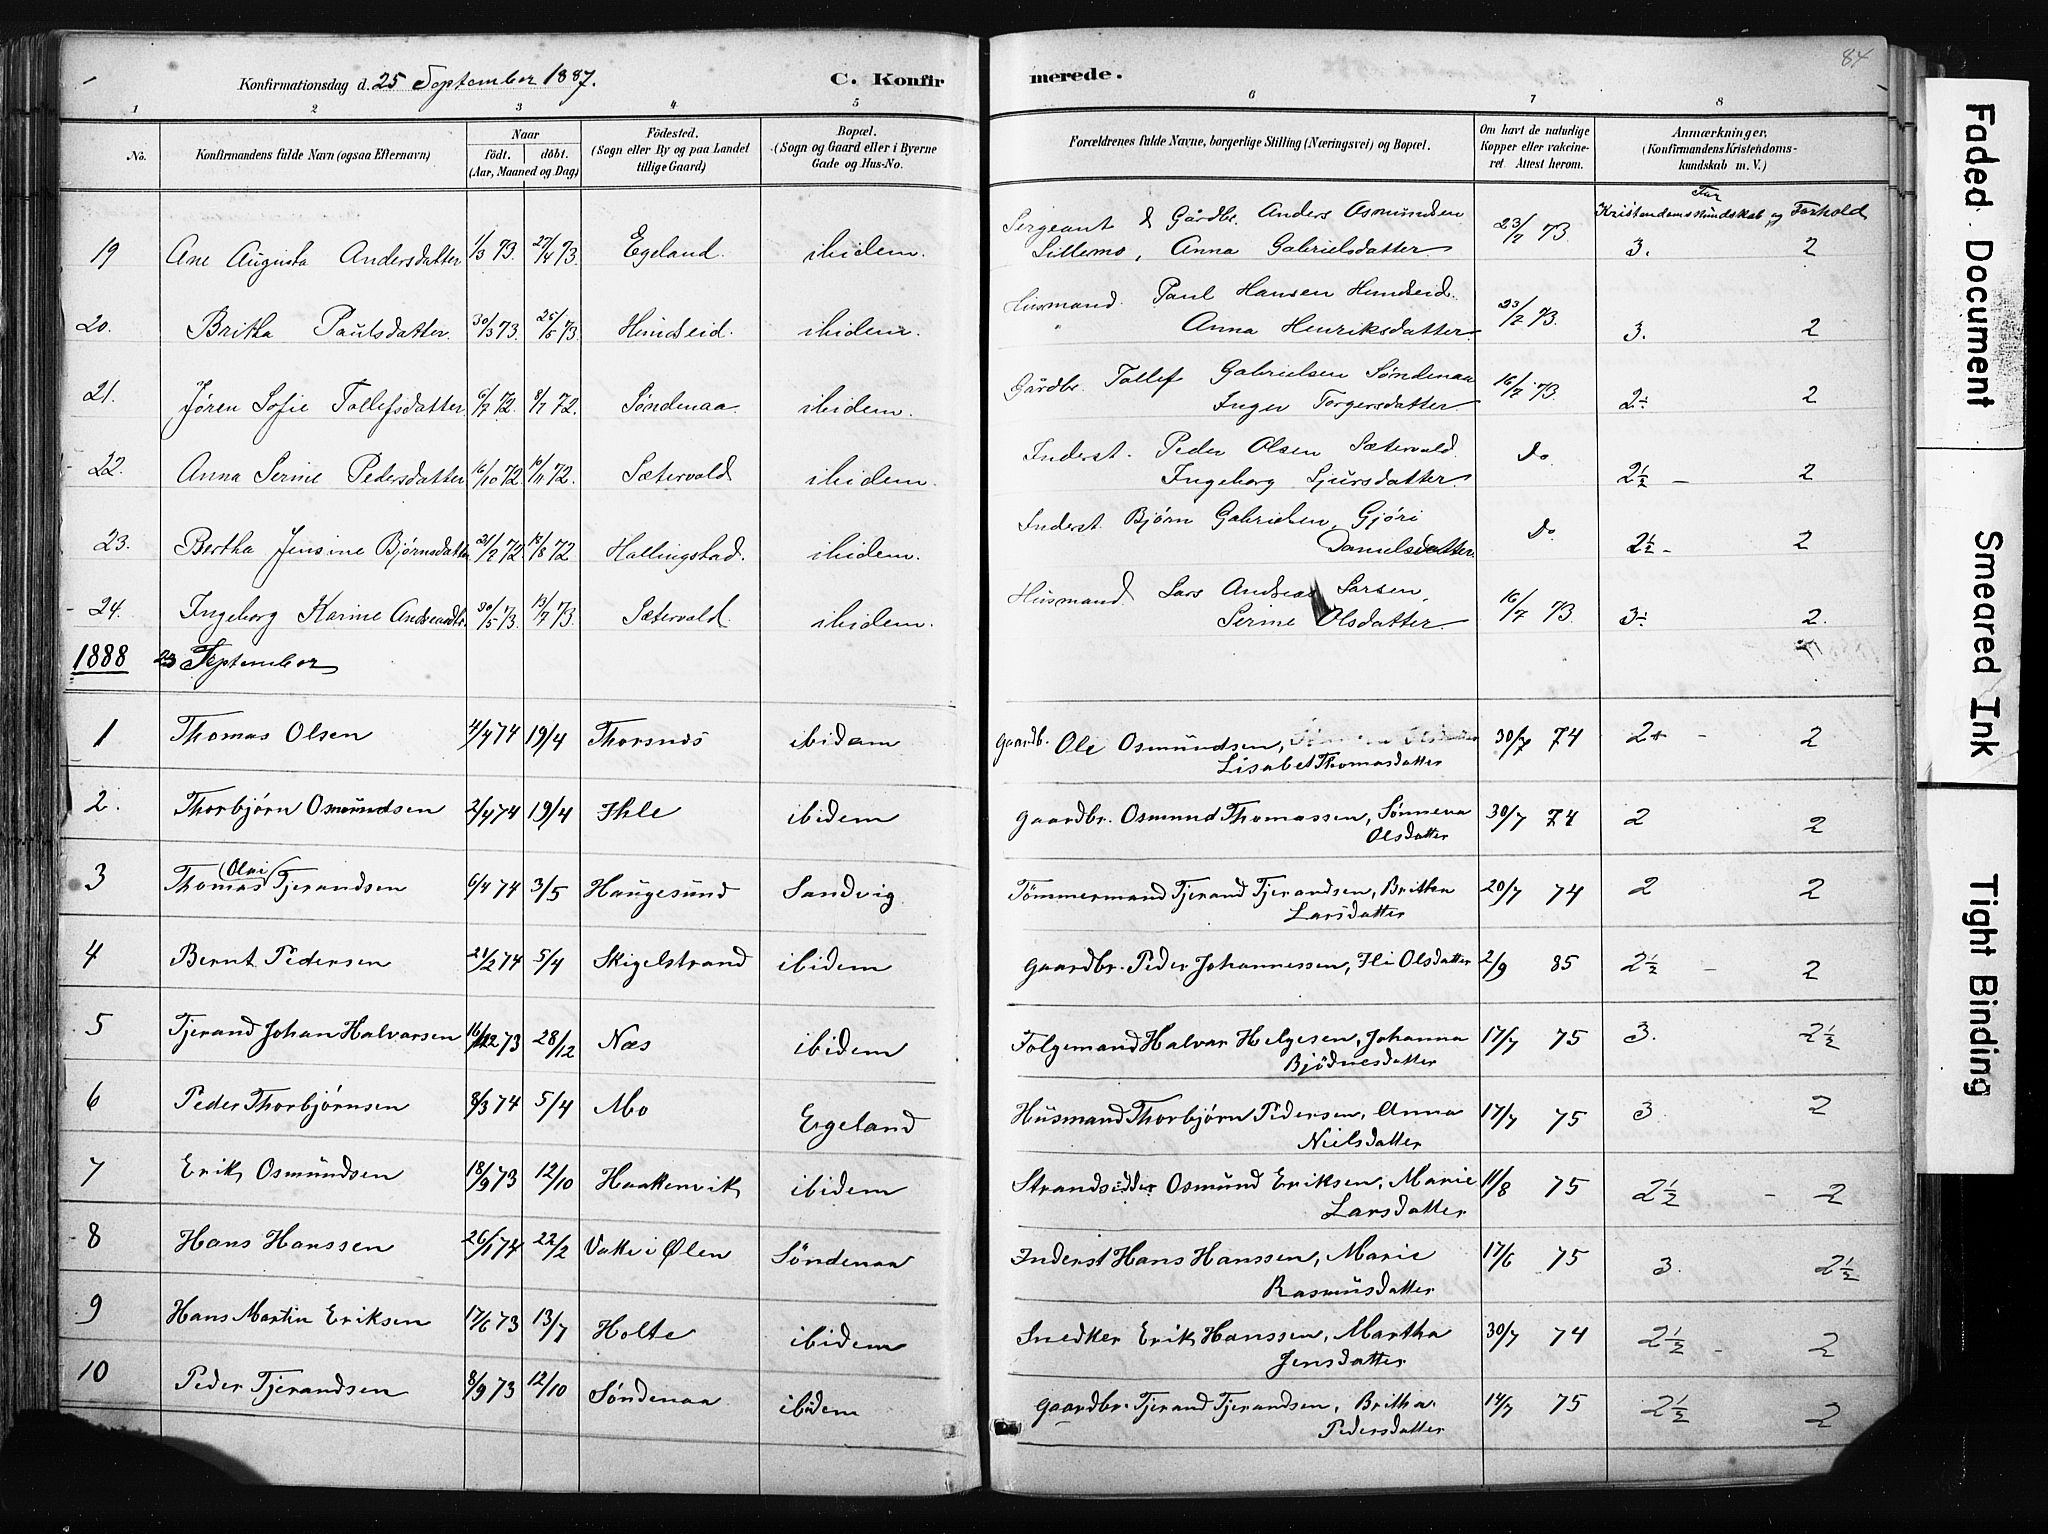 84
Konfirmationsdag d. 25 September 1887. C. Konfirmerede.
1 2 3 4 5 6 7 8
No. Konfirmandens fulde Navn (ogsaa Efternavn) Naar født. døbt. (Aar, Maaned og Dag) Födested. (Sogn eller By og paa Landet tillige Gaard) Bopæl. (Sogn og Gaard eller i Byerne Gade og Hus-No. Forældrenes fulde Navne, borgerlige Stilling (Næringsvei) og Bopæl. Om havt de naturlige Kopper eller vakcineret Attest herom. Anmærkninger, (Konfirmandens Kristendomskundskab m. V.)
Kar
Kristendomskundskab og Forhold
19 Ane Augusta Andersdatter 1/3 73. 27/4 73. Egeland. ibidem. Sergeant & Gårdbr. Anders Osmundsen Lillemo, Anna Gabrielsdatter 23/7 73 3. 2
20. Britha Paulsdatter. 30/3 73. 25/5 73 Hundseid. ibidem. Husmand. Paul Hansen Hundseid. " Anna Henriksdatter. 23/7 73. 3. 2
21. Jøren Sofie Tollefsdatter. 6/7 72. 8/7 72. Søndenaa. ibidem. Gårdbr. Tollef Gabrielsen Søndenaa Inger Torgersdatter. 16/7 73. 2÷ 2
22. Anna Serine Pedersdatter. 16/10 72. 10/11 72. Sætervold ibidem. Inderst. Peder Olsen Sætervold. Ingeborg Sjursdatter. Do. 2½ - 2
23. Bertha Jensine Bjørnsdatter 21/7 72. 18/8 72 Hallingstad. ibidem. Inderst. Bjørn Gabrielsen, Gjøri Danielsdatter. Do. 2½ - 2
24. Ingeborg Karine Andreasdtr. 30/5 73. 13/7 73. Sætervold. ibidem. Husmand. Lars Andreas Larsen, Serine Olsdatter. 16/7 73. 3÷ 2.
1888 23 September
1 Thomas Olsen 4/4 74 19/4 Thorsnes ibidem Gaardb. Ole Osmundsen, Lisabet Thomasdatter 30/7 74 2+ - 2
2. Thorbjørn Osmundsen 2/4 74 19/4 Ihle ibidem Gaardbr. Osmund Thomassen, Sønneva Olsdatter 30/7 74 2 2
3 Thomas (Olai) Tjerandsen 6/4 74 3/5 Haugesund Sandvig Tømmermand Tjerand Tjerandsen, Britha Larsdatter 20/7 74 2 2
4 Bernt Pedersen 21/2 74 5/4 Skigelstrand ibidem Gaardbr. Peder Johannessen, Eli Olsdatter 2/9 85 2½ - 2
5 Tjerand Johan Halvarsen 16/12 73 28/12 Næs ibidem Følgemand Halvar Helgesen, Johanna Bjødnesdatter 17/7 75 3. 2½
6 Peder Thorbjørnsen 8/3 74 5/4 Mo Egeland Husmand Thorbjørn Pedersen, Anna Nielsdatter 17/7 75 3. 2
7 Erik Osmundsen 18/9 73 12/10 Haakenvik ibidem Strandsidder Osmund Eriksen, Marie Larsdatter 11/8 75 2½ - 2
8 Hans Hanssen 26/1 74 22/2 Vake i Ølen Søndenaa Inderst Hans Hanssen, Marie Rasmusdatter 17/6 75 3. 2½
9 Hans Martin Eriksen 17/6 73 13/7 Holte ibidem Snedker Erik Hanssen, Martha Jensdatter 30/7 74 2½ - 2
10 Peder Tjerandsen 8/9 73 12/10 Søndenaa ibidem Gaardbr. Tjerand Tjerandsen, Britha Pedersdatter 14/7 75 2½ 2
Faded Document
Smeared Ink
Tight Binding